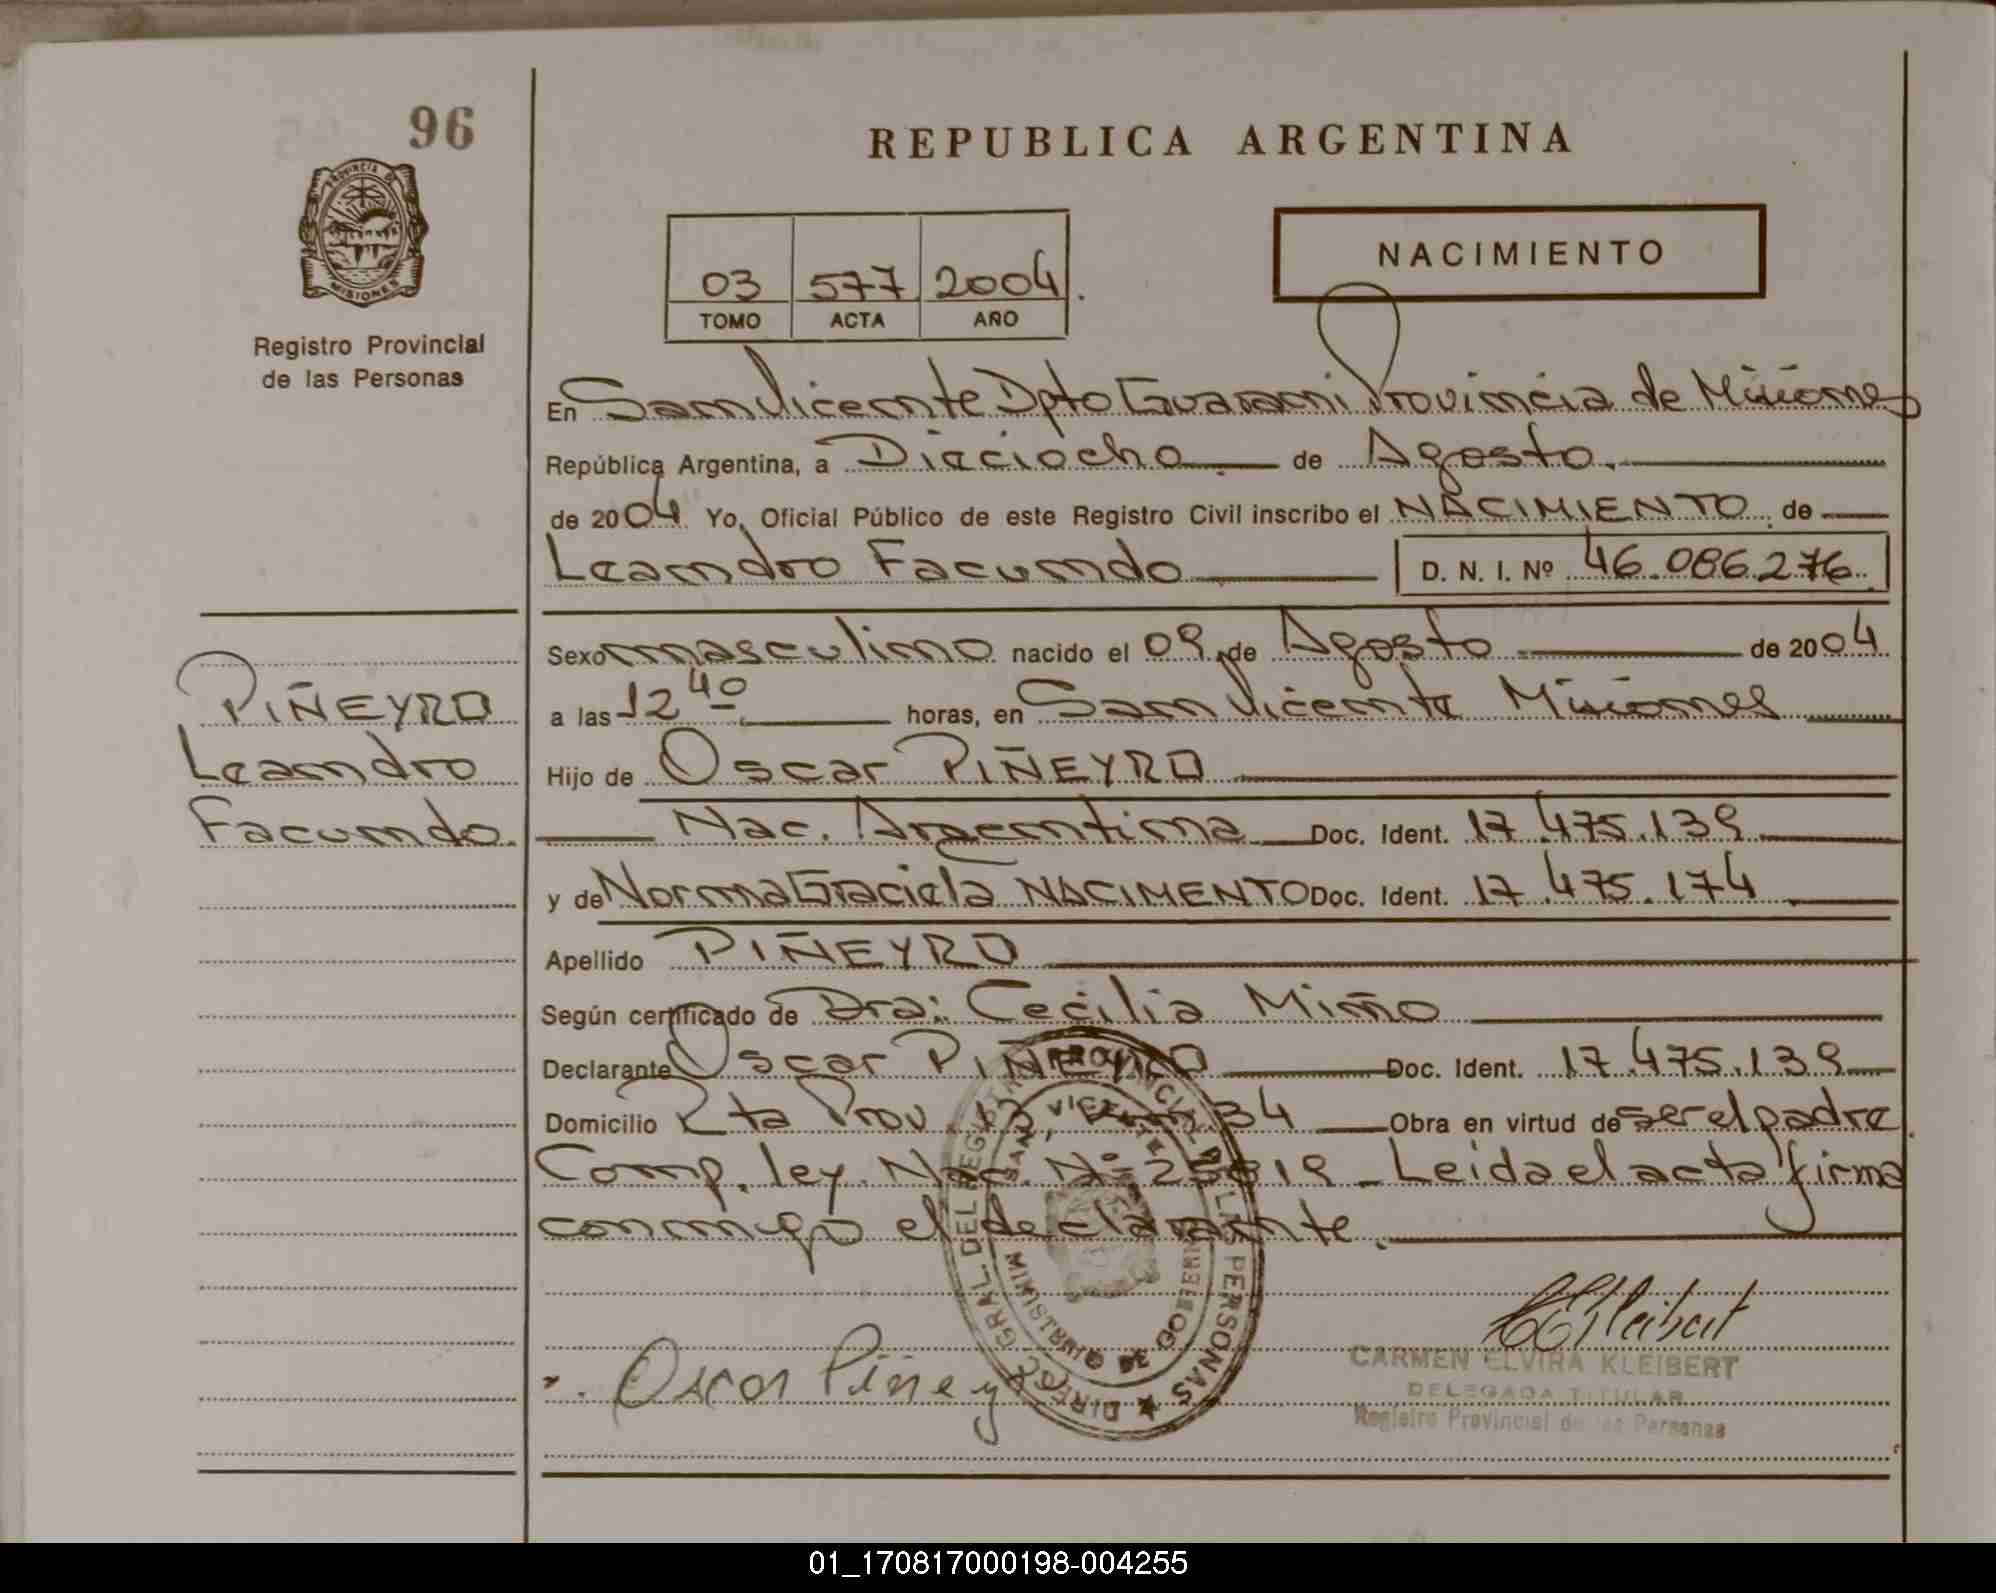 96
REPUBLICA ARGENTINA
PROVINCIA DE
MISIONES
Registro Provincial
de las Personas
03 577 2004
TOMO ACTA AÑO
NACIMIENTO
En San Vicente Dpto Guarani Provincia de Misiones
República Argentina, a Dieciocho de Agosto.
de 2004 Yo, Oficial Público de este Registro Civil inscribo el NACIMIENTO de
Leandro Facundo D. N. I. Nº 46.086.276
Sexo masculino nacido el 09 de Agosto de 2004
a las 12 40 horas, en San Vicente Misiones
PIÑEYRO
Leandro
Facundo.
Hijo de Oscar PIÑEYRO
Nac. Argentina Doc. Ident. 17.475.139
y de Norma Graciela NACIMENTO Doc. Ident. 17.475.174
Apellido PIÑEYRO
Según certificado de Dra: Cecilia Miño
Declarante Oscar PIÑEYRO Doc. Ident. 17.475.139
Domicilio Rta Prov. 13, 34 Obra en virtud de ser el padre
Comp. ley. Nac. Nº 25819 - Leida el acta firma
conmigo el declarante.
DIREC. GRAL. DEL REGISTRO PROVINCIAL DE LAS PERSONAS
SAN VICENTE
MINISTERIO DE GOBIERNO
Oscar Piñey
CARMEN ELVIRA KLEIBERT
DELEGADA TITULAR
Registro Provincial de las Personas
01_170817000198-004255